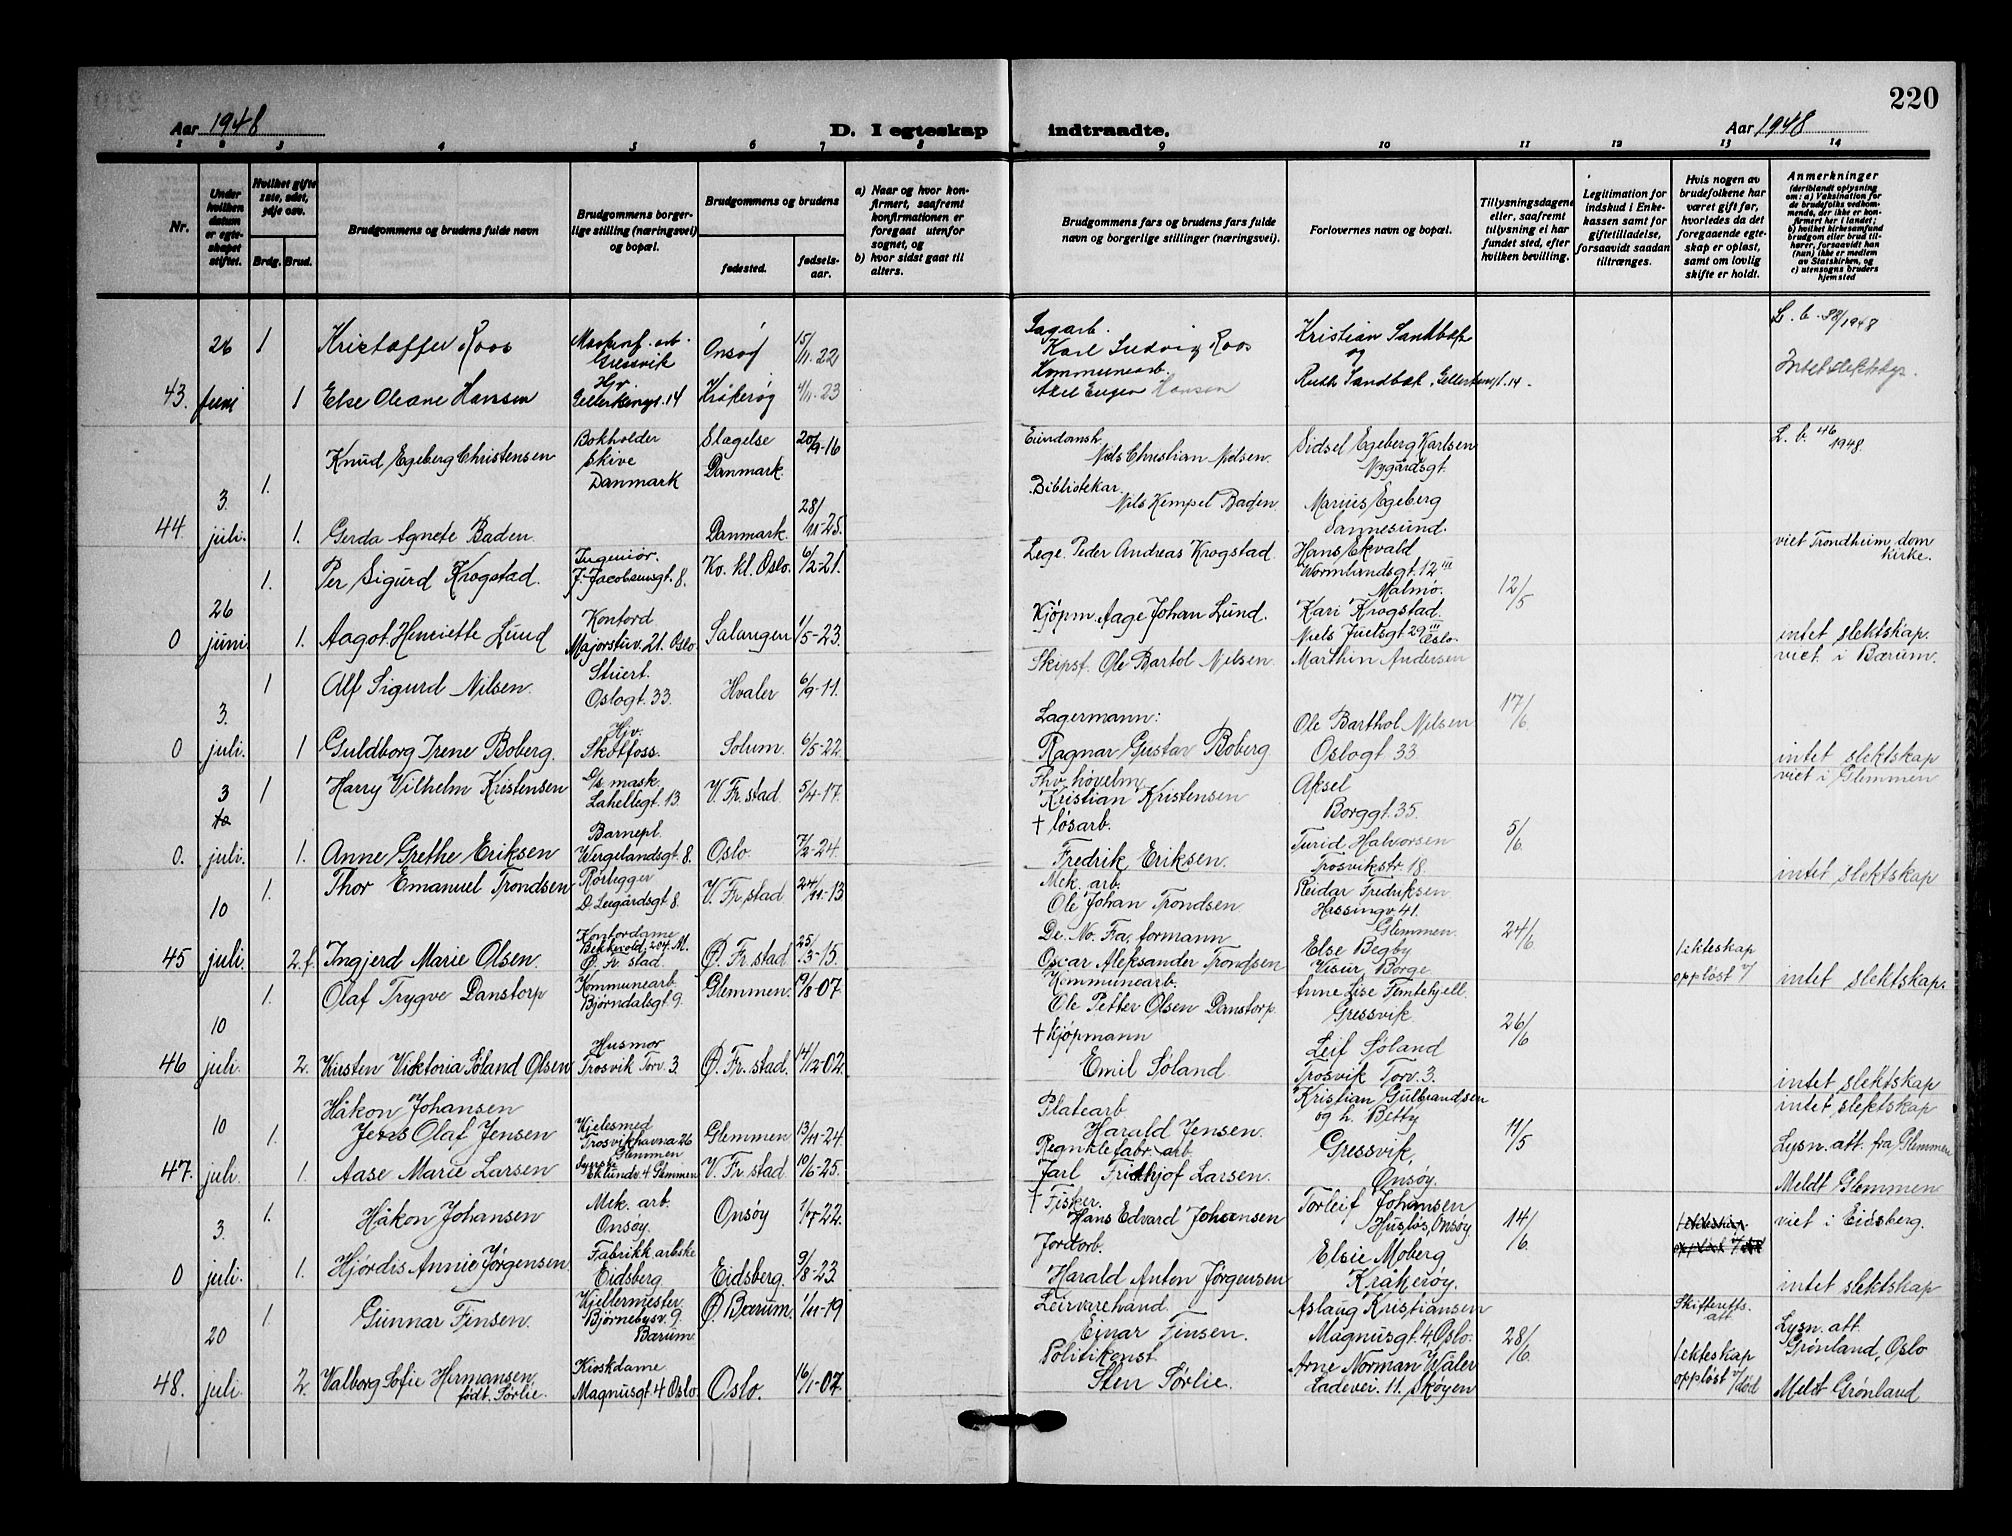 220
Aar 1948
D. I egteskap indtraadte.
Aar 1948
1 2 3 4 5 6 7 8 9 10 11 12 13 14
Nr.
Under hvilken datum er egteskapet stiftet.
Hvilket gifte 1ste, 2det, 3dje osv.
Brdg. Brud.
Brudgommens og brudens fulde navn
Brudgommens borgerlige stilling (næringsvei) og bopæl.
Brudgommens og brudens
fødested.
fødselsaar.
a) Naar og hvor konfirmert, saafremt konfirmationen er foregaat utenfor sognet, og
b) hvor sidst gaat til alters.
Brudgommens fars og brudens fars fulde navn og borgerlige stillinger (næringsvei).
Forlovernes navn og bopæl.
Tillysningsdagene eller, saafremt tillysning ei har fundet sted, efter hvilken bevilling.
Legitimation for indskud i Enkekassen samt for giftetilladelse, forsaavidt saadan tiltrænges.
Hvis nogen av brudefolkene har været gift før, hvorledes da det foregaaende egteskap er opløst, samt om lovlig skifte er holdt.
Anmerkninger (deriblandt oplysning om: a) Vaksination for de brudefolks vedkommende, der ikke er konfirmert her i landet; b) hvilket kirkesamfund brudgom eller brud tilhører, forsaavidt han (hun) ikke er medlem av Statskirken, og c) utensogns bruders hjemsted
26 1 Kristoffer Roos Gressvik Onsøy 15/11-22 Sagarb. Karl Ludvig Roos Kristian Sandbæk og L. b. 38/1948
43. juni 1 Else Oleane Hansen Hjv. Gellertsensgt. 14 Kråkerøy 4/11-23 Kommunearb. Axel Eugen Hansen Ruth Sandbæk, 14 Intet slektskap.
3. 1. Knud Egeberg Christensen Bokholder Skive Danmark Slagelse Danmark 20/9-16 Eiendomsh. Niels Christian Nielsen Sidsel Egeberg Karlsen Nygårdsgt. L. b. 46 1948.
44. juli. 1. Gerda Agnete Baden. Danmark. 28/11-25. Bibliotekar Nils Kempel Baden. Marius Egeberg Sannesund.
1. Per Sigurd Krogstad. Ingeniør. J. Jacobsensgt. 8. Ko. kl. Oslo. 6/2-21. Lege. Peder Andreas Krogstad Hans Ekvald Wormlandsgt. 12 III Malmø. 12/5 viet Trondheim dom kirke.
26
0 juni. 1. Aagot Henriette Lund Kontord Majorstuv. 21. Oslo Salangen 1/5-23. Kjøpm Aage Johan Lund Kari Krogstad. Niels Juelsgt 29 III Oslo. intet slektskap.
1 Alf Sigurd Nilsen. Stuert. Oslogt. 33. Hvaler 6/9-11. Skipsf. Ole Bartol Nilsen. Marthin Andersen 17/6 viet i Bærum.
3.
0 juli. 1 Guldborg Irene Boberg. Hjv. Skotfoss. Solum. 6/5-22. Lagermann: Ragnar Gustav Boberg Ole Barthol Nilsen Oslogt 33 intet slektskap
3 1 Harry Vilhelm Kristensen mask. Lahellegt. 13 V. Fr. stad 5/4-17. Kristian Kristensen Aksel Borggt. 35. 5/6 viet i Glemmen
0. juli. 1. Anne Grethe Eriksen Barnepl. Wergelandsgt. 8. Oslo. 7/2-24. † løsarb. Fredrik Eriksen. Turid Halvorsen Trosvikstr. 18. intet slektskap
10 1. Thor Emanuel Trondsen Rørlegger D. Leegårdsgt 8. V. Fr. stad 24/11-13 Mek. arb. Ole Johan Trondsen Reidar Fredriksen Hassingv. 41. Glemmen. 24/6
45 juli. 2. f. Ingjerd Marie Olsen. Kontordame Ø. Fr. stad Ø. Fr. stad 25/3-15. De. No. Fa. formann Oscar Aleksander Trondsen Else Begby Visur, Borge 1 ekteskap oppløst v/ intet slektskap.
10 1. Olaf Trygve Danstorp Kommunearb Bjørndalsgt 9. Glemmen. 19/8-07. Kommunearb. Ole Petter Olsen Danstorp. Anne Lise Femtehjell. Gressvik. 26/6
46 juli. 2. Kirsten Viktoria Søland Olsen Husmor Trosvik Torv. 3 Ø. Fr. stad. 14/12-02. † Kjøpmann Emil Søland Leif Søland Trosvik Torv. 3. intet slektskap
10 1. Håkon Johansen Jens Olaf Jensen Kjelesmed Trosvikhavna 26 Glemmen Glemmen 13/11-24. Platearb Harald Jensen. Kristian Gulbrandsen og h. Betty 11/5 intet slektskap Lysn. att. fra Glemmen
47. juli. 1. Aase Marie Larsen Syerske Eklundv. 4 Glemmen V. Fr. stad 10/6-25. fabr. arb Jarl Fridthjof Larsen. Gressvik, Onsøy. Meldt Glemmen
3. 1. Håkon Johansen Mek. arb. Onsøy. Onsøy 1/7-22. † Fisker. Hans Edvard Johansen Torleif Johansen Husløs, Onsøy 14/6 1 ekteskap oppløst v/ død viet i Eidsberg.
0 juli. 1. Hjørdis Annie Jørgensen Fabrikk arbske Eidsberg. Eidsberg. 9/8-23. Jordarb. Harald Anton Jørgensen Elsie Moberg Kråkerøy. intet slektskap
20 1. Gunnar Finsen. Kjellermester. Bjørnebysv. 9. Bærum. Ø. Bærum. 1/11-19 Leirvarehand. Einar Finsen. Aslaug Kristiansen Magnusgt. 4 Oslo. 28/6 Skifteretts. att. Lysn. att. Grønland, Oslo
48. juli. 2. Valborg Sofie Hermansen. født. Sørlie. Kioskdame Magnusgt 4 Oslo Oslo. 16/1-07. Politikonst Sten Sørlie. Arne Norman Waler Ladevei. 11. Skøyen 1 ekteskap oppløst v/ død Meldt Grønland